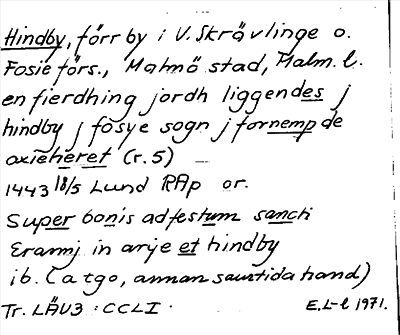 Hindby, förr by i V. Skrävlinge o.
Fosie förs., Malmö stad, Malm. l.
en fierdhing jordh liggendes j
hindby j fosye sogn j fornempde
oxieheret (r. 5) —
1443 18/5 Lund RAp or.
Super bonis ad festum sancti
Eranmj in arije et hindby
ib. (a tgo, annan samtida hand)
Tr. LÄU3 : CCLI .
E. L-l 1971.